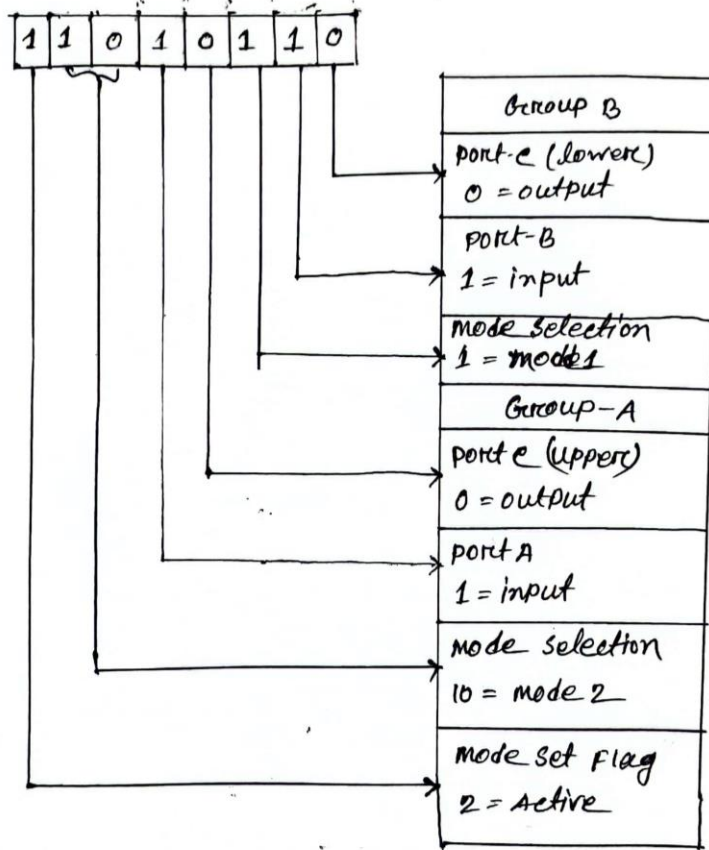 1 1 0 1 0 1 1 0
Group B
port-c (lower)
0 = output
port-B
1 = input
mode selection
1 = mode1
Group-A
port c (upper)
0 = output
port A
1 = input
mode selection
10 = mode 2
mode set Flag
2 = Active